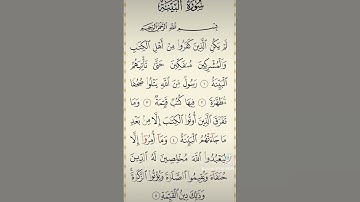 سُورَةُ الْبَيِّنَةِ
بِسْمِ اللَّهِ الرَّحْمَٰنِ الرَّحِيمِ
لَمْ يَكُنِ الَّذِينَ كَفَرُوا مِنْ أَهْلِ الْكِتَابِ
وَالْمُشْرِكِينَ مُنفَكِّينَ حَتَّىٰ تَأْتِيَهُمُ
الْبَيِّنَةُ ١ رَسُولٌ مِّنَ اللَّهِ يَتْلُو صُحُفًا
مُّطَهَّرَةً ٢ فِيهَا كُتُبٌ قَيِّمَةٌ ٣ وَمَا
تَفَرَّقَ الَّذِينَ أُوتُوا الْكِتَابَ إِلَّا مِن بَعْدِ
مَا جَاءَتْهُمُ الْبَيِّنَةُ ٤ وَمَا أُمِرُوا إِلَّا
لِيَعْبُدُوا اللَّهَ مُخْلِصِينَ لَهُ الدِّينَ
حُنَفَاءَ وَيُقِيمُوا الصَّلَاةَ وَيُؤْتُوا الزَّكَاةَ
وَذَٰلِكَ دِينُ الْقَيِّمَةِ ٥